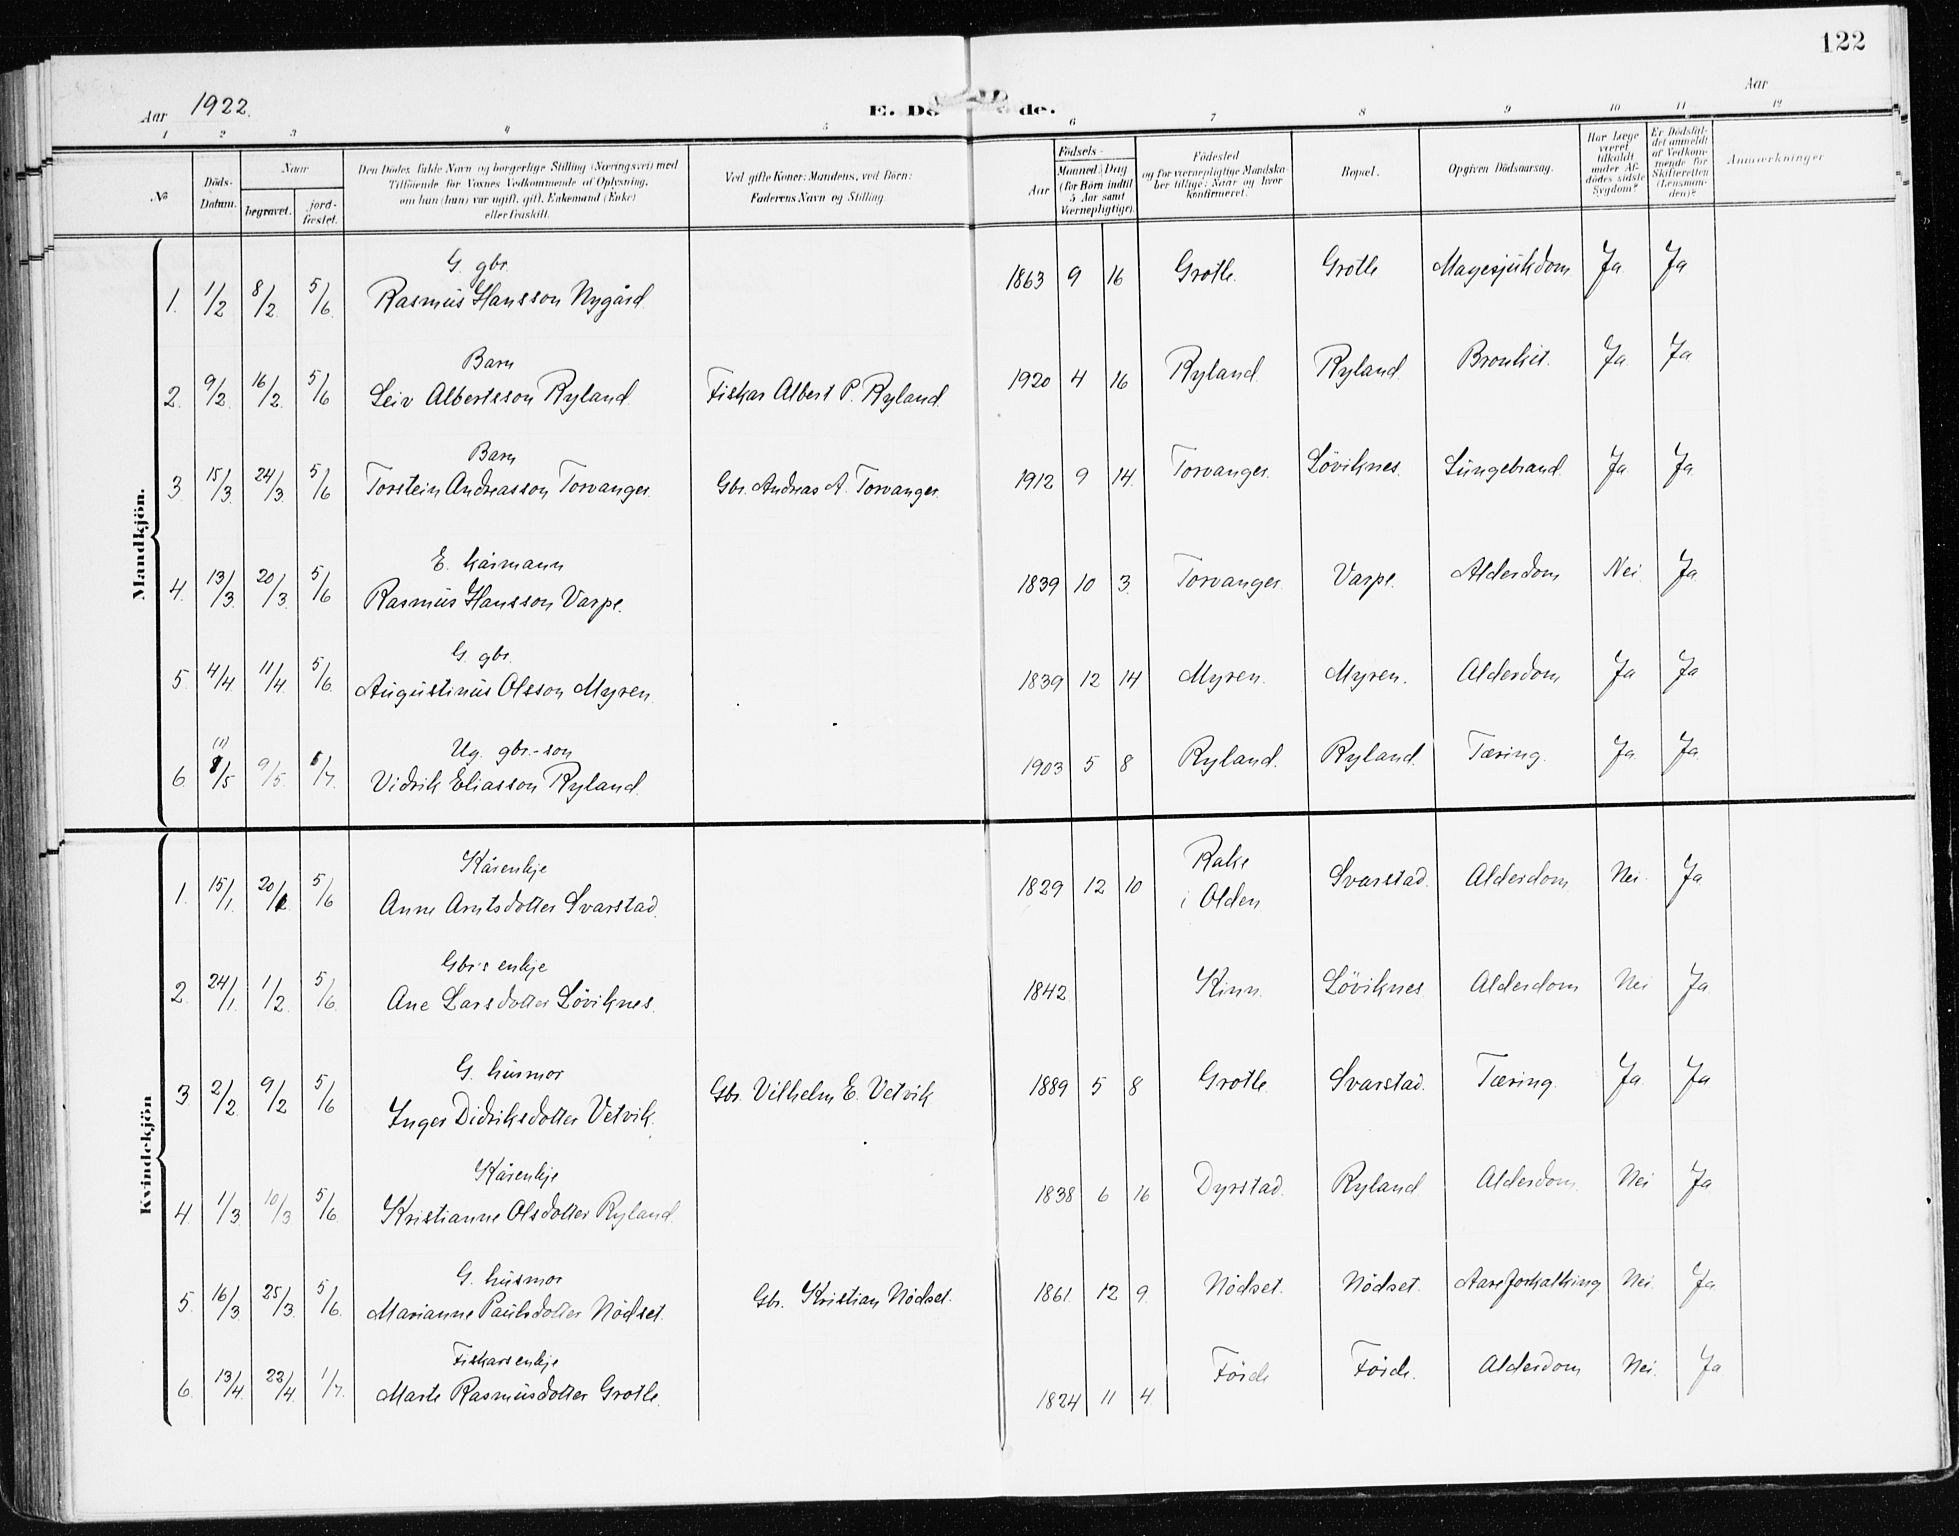 122
Aar 1922.
E. Dö de.
Aar
1 2 3 4 5 6 7 8 9 10 11 12
No
Döds-Datum.
Naar
begravet.
jord-fæstet.
Den Dödes fulde Navn og borgerlige Stilling (Næringsvei) med Tilföiende for Voxnes Vedkommende af Oplysning, om han (hun) var ugift, gift, Enkemand (Enke) eller fraskilt.
Ved gifte Koner: Mandens, ved Börn: Faderens Navn og Stilling.
Födsels-
Aar
Maaned. Dag
(for Börn indtil 5 Aar samt Værnepligtige).
Födested og for værnepligtige Mandskaber tillige: Naar og hvor konfirmeret.
Bopæl.
Opgiven Dödsaarsag.
Har Læge været tilkaldt under Afdödes sidste Sygdom?
Er Dödsfaldet anmeldt af Vedkommende for Skifteretten (Lensmanden)?
Anmærkninger
Mandkjön.
G. gbr.
1. 1/2 8/2 5/6 Rasmus Hansson Nygård 1863 9 16 Grotle. Grotle Magesjukdom Ja Ja
Barn
2. 9/2 16/2 5/6 Leiv Albertsson Ryland Fiskar Albert P. Ryland 1920 4 16 Ryland. Ryland. Bronkit. Ja Ja
Barn
3. 15/3 24/3 5/6 Torstein Andreasson Torvanger Gbr. Andreas A. Torvanger. 1912 9 14 Torvanger. Löviknes. Lungebrand. Ja Ja
E. kårmann
4. 13/3 20/3 5/6 Rasmus Hansson Varpe. 1839 10 3 Torvanger. Varpe. Alderdom Nei. Ja
G. gbr.
5. 4/4 11/4 5/6 Augustinus Olsson Myren. 1839 12 14 Myren. Myren. Alderdom Ja Ja
Ug. gbr.-son
(1)
6. /5 9/5 /7 Vidrik Eliasson Ryland 1903 5 8 Ryland. Ryland. Tæring. Ja Ja
Kvindekjön
Kårenkje
1. 15/1 20/ 5/6 Anne Arntsdotter Svarstad 1829 12 10 Rake i Olden Svarstad. Alderdom Nei Ja
Gbr's enkje
2. 24/1 1/2 5/6 Ane Larsdotter Löviknes. 1842 Kinn. Löviknes Alderdom Nei Ja
G. husmor
3. 2/2 9/2 5/6 Inger Didriksdotter Vetvik. Gbr. Vilhelm E. Vetvik 1889 5 8 Grotle. Svarstad. Tæring. Ja Ja
Kårenkje
4 1/3 10/3 5/6 Kristianne Olsdotter Ryland. 1838 6 16 Dyrstad. Ryland Alderdom. Nei Ja
G. husmor
5. 16/3 25/3 5/6 Marianne Paulsdotter Nödset. Gbr. Kristian Nödset. 1861 12 9. Nödset. Nödset. Aareforkalking Nei. Ja
Fiskarsenkje
6. 13/4 23/4 1/7. Marte Rasmusdotter Grotle. 1824 11 4. Förde Förde. Alderdom Nei. Ja